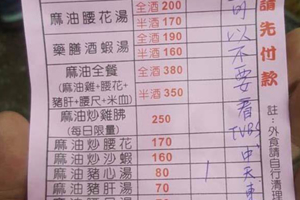 麻油腰花湯 全酒 200
半酒 170
藥膳酒蝦湯 全酒 190
半酒 160
麻油全餐 全酒 380
(麻油雞+腰花+豬肝+腰尺+米血) 半酒 350
麻油炒雞腓 250
(每日限量)
麻油炒腰花 170
麻油炒沙蝦 160
麻油豬心湯 80 1
麻油豬肝湯 70
70
可以不要看
TVBS 中天
請先付款
註:外食請自行清理